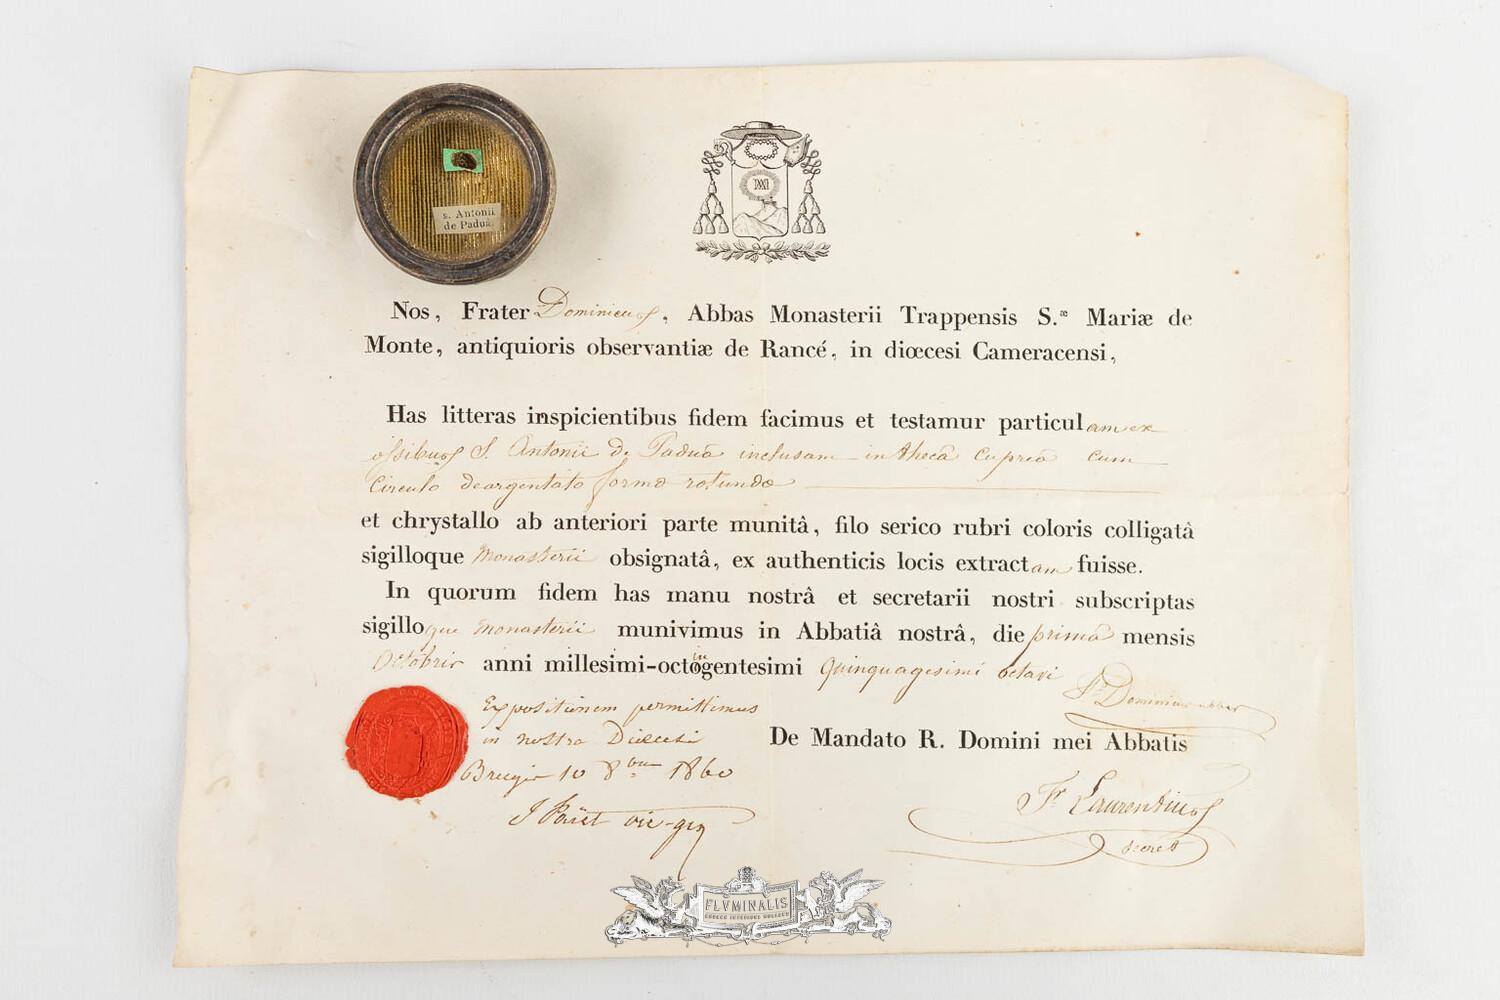 s. Antonii
de Padua.
Nos, Frater Dominicus, Abbas Monasterii Trappensis S.æ Mariæ de
Monte, antiquioris observantiæ de Rancé, in diœcesi Cameracensi,
Has litteras inspicientibus fidem facimus et testamur particulam ex
ossibus S. Antonii de Paduâ inclusam in thecâ cupreâ cum
Circulo deargentato formæ rotundæ
et chrystallo ab anteriori parte munitâ, filo serico rubri coloris colligatâ
sigilloque Monasterii obsignatâ, ex authenticis locis extractam fuisse.
In quorum fidem has manu nostrâ et secretarii nostri subscriptas
sigilloque monasterii munivimus in Abbatiâ nostrâ, die primâ mensis
Octobris anni millesimi-octogentesimi quinquagesimi octavi
in
fr Dominicus abbas
Expositionem permittimus
in nostra Diœcesi
Brugis 10 8bris 1860
De Mandato R. Domini mei Abbatis
vic-gen
Fr. Laurentius
secret
FLVMINALIS